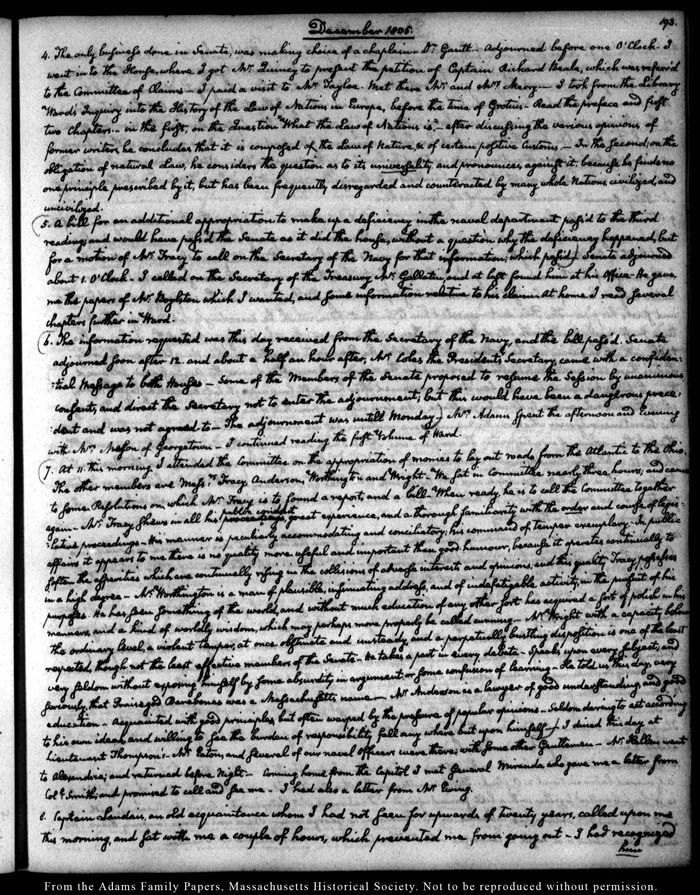 December 1805.
193.
4. The only business done in Senate, was making choice of a chaplain Dr. Gantt. Adjourned before one O'Clock. I
went in to the House, where I got Mr. Quincy to present the petition of Captain Richard Beale, which was referr'd
to the Committee of Claims — I paid a visit to Mr. Tayloe. Met there Mr. and Mrs. Merry — I took from the Library
Ward's Inquiry into the History of the Law of Nations in Europe, before the time of Grotius — Read the preface and first
two Chapters — in the first, on the Question "What the Law of Nations is," — after discussing the various opinions of
former writers, he concludes that it is composed of the Law of Nature & of certain positive Customs — In the second, on the
obligation of natural Law, he considers the question as to its universality and pronounces against it, because he finds no
one principle prescribed by it, but has been frequently disregarded and counteracted by many whole Nations, civilized, and
uncivilized.
5. A bill for an additional appropriation to make up a deficiency in the naval department pass'd to the third
reading; and would have pass'd the Senate as it did the house, without a question why the deficiency happened, but
for a motion of Mr. Tracy to call on the Secretary of the Navy for that information; which pass'd. Senate adjourned
about 1. O'Clock — I called on the Secretary of the Treasury Mr. Gallatin, and at last found him at his Office. He gave
me the papers of Mr. Boylston which I wanted, and some information relative to his claim. At home I read several
chapters further in Ward.
6. The information requested was this day received from the Secretary of the Navy, and the bill pass'd. Senate
adjourned soon after 12. and about a half an hour after, Mr. Coles the President's Secretary, came with a confiden-
tial Message to both Houses — Some of the Members of the Senate proposed to resume the Session by unanimous
consent, and direct the Secretary not to enter the adjournment; but this would have been a dangerous prece-
dent and was not agreed to — The adjournment was untill Monday. Mrs. Adams spent the afternoon and Evening
with Mrs. Mason of Georgetown — I continued reading the first volume of Ward.
7. At 11. this morning I attended the Committee on the appropriation of monies to lay out roads from the Atlantic to the Ohio.
The other members are Messrs. Tracy, Anderson, Worthington and Wright. We sat in Committee nearly three hours; and came
to some Resolutions on which Mr. Tracy is to found a report, and a bill. When ready, he is to call the Committee together
again — Mr. Tracy shews in all his public conduct great experience, and a thorough familiarity with the order and course of legis-
lative proceedings — His manner is peculiarly accommodating and conciliatory; his command of temper exemplary. In public
affairs it appears to me there is no quality more useful and important than good humour, because it operates continually to
soften the asperities which are continually rising in the collisions of adverse interests and opinions, and this quality Tracy possesses
in a high degree — Mr. Worthington is a man of plausible, insinuating address, and of indefatigable activity, in the pursuit of his
purposes. He has seen something of the world, and without much education of any other sort has acquired a sort of polish in his
manners, and a kind of worldly wisdom, which may perhaps more properly be called cunning — Mr. Wright with a capacity below
the ordinary level, a violent temper, at once obstinate and unsteady, and a perpetually bustling disposition is one of the least
respected, though not the least effective members of the Senate — He takes a part in every debate — Speaks upon every subject, and
very seldom without exposing himself by some absurdity in argument or some confusion of learning — He told us this day, very
seriously that Praisegod Barebones was a Massachusetts name — Mr. Anderson is a lawyer of good understanding, and good
education — Acquainted with good principles, but often warped by the pressure of popular opinions — Seldom daring to act according
to his own ideas, and willing to see the burden of responsibility fall any where but upon himself — I dined this day at
Lieutenant Thompson's. Mr. Eaton, and several of our naval Officers were there; with some other Gentlemen — Mr. Hellen went
to Alexandria; and returned before Night — Coming home from the Capitol I met General Miranda who gave me a letter from
Coll. Smith; and promised to call and see me — I had also a letter from Mr. Ewing.
8. Captain Landais, an old acquaintance whom I had not seen for upwards of twenty years, called upon me
this morning, and sat with me a couple of hours, which prevented me from going out — I had recognized
him
From the Adams Family Papers, Massachusetts Historical Society. Not to be reproduced without permission.